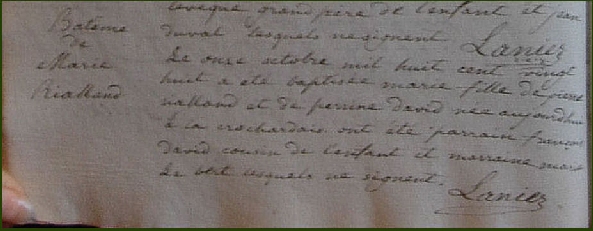 levêque grand père de lenfant et jean
duval lesquels ne signent Lanier
Batême
de
Marie
Rialland
Le onze octobre mil huit cent vingt
huit a été baptisée marie fille de pierre
rialland et de perrine david née aujourdhui
à la crochardais ont été parrain francois
david cousin de lenfant et marraine marie
le bret lesquels ne signent.
Lanier